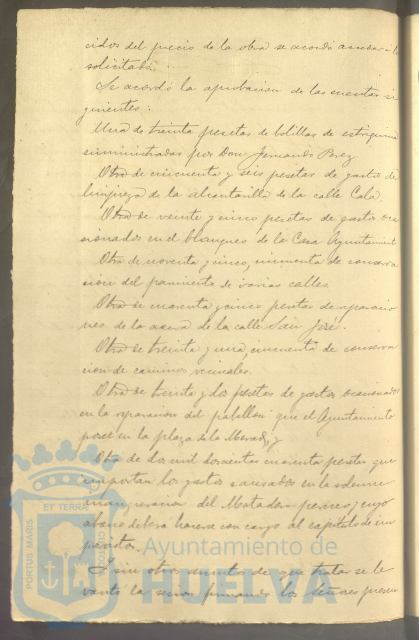 cidos del precio de la obra se acordó acceder a lo
solicitado.
Se acordó la aprobación de las cuentas si
guientes:
Una de treinta pesetas de bolillas de estriquinina
suministradas por Don Fernando Perez
Otra de cincuenta y seis pesetas de gastos de
limpieza de la alcantarilla de la calle Cala.
Otra de veinte y cinco pesetas de gastos oca
sionados en el blanqueo de la Casa Ayuntamient
Otra de noventa y cinco, cincuenta de conserva
cion del pavimento de varias calles.
Otra de cuarenta y cinco pesetas de reparacio
nes de la acera de la calle San José.
Otra de treinta y una, cincuenta de conserva
cion de caminos vecinales.
Otra de treinta y dos pesetas de gastos ocasionados
en la reparacion del pabellon que el Ayuntamiento
posee en la plaza de la Merced, y
Otra de dos mil doscientas cuarenta pesetas que
importan los gastos causados en la solemne
inauguracion del Matadero publico; cuyo
abono deberá hacerse con cargo al capitulo de im
previstos.
Y sin otros asuntos de que tratar se le
vantó la sesion firmando los Señores presen
PORTUS MARIS
ET TERRÆ
CUSTODIA
Ayuntamiento de
HUELVA